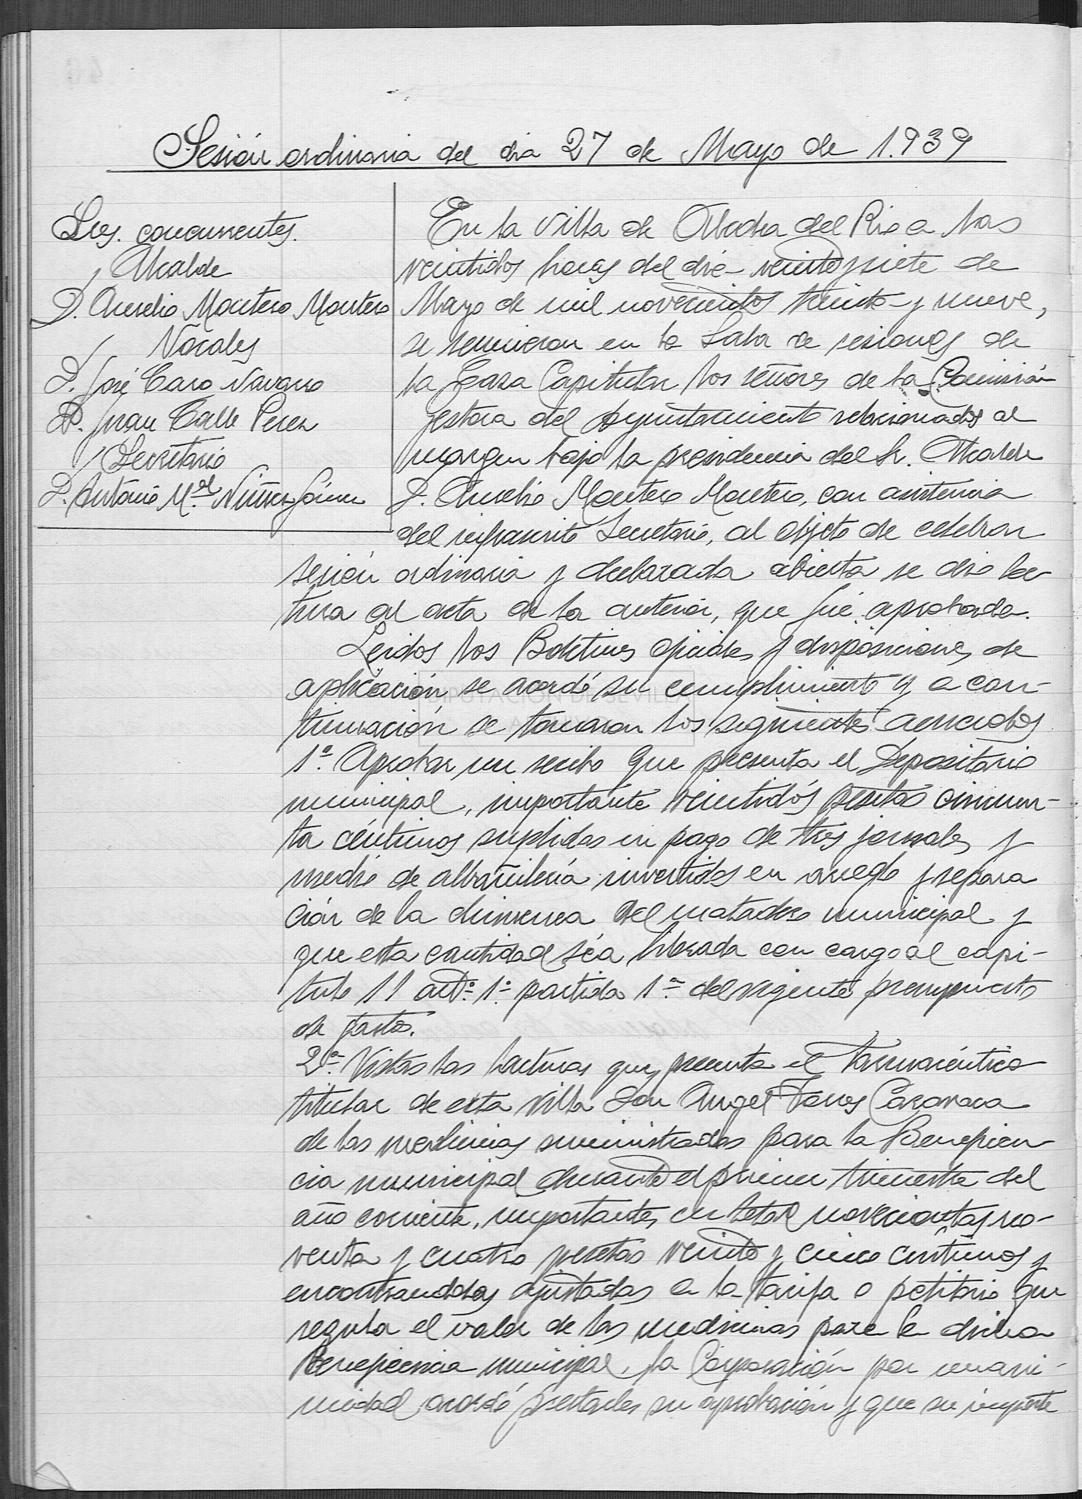 Sesión ordinaria del dia 27 de Mayo de 1.939
Sres. concurrentes.
Alcalde
D. Aurelio Montero Montero
Vocales
D. José Caro Navarro
D. Juan Calle Perez
Secretario
D. Antonio M.ª Núñez
En la Villa de Alcolea del Rio a las
veintidos horas del dia veintisiete de
Mayo de mil novecientos treinta y nueve,
se reunieron en la Sala de sesiones de
la Casa Capitular los señores de la Comisión
gestora del Ayuntamiento relacionados al
margen bajo la presidencia del Sr. Alcalde
D. Aurelio Montero Montero, con asistencia
del infrascrito Secretario, al objeto de celebrar
sesión ordinaria y declarada abierta se dió lec-
tura al acta de la anterior, que fué aprobada.
Leidos los Boletines oficiales y disposiciones de
aplicación se acordó su cumplimiento y a con-
tinuación se tomaron los siguientes acuerdos
1º. Aprobar un recibo que presenta el Depositario
municipal, importante veintidós pesetas cincuen-
ta céntimos suplidas en pago de tres jornales y
medio de albañilería invertidos en arreglo y repara
ción de la chimenea del matadero municipal y
que esta cantidad sea librada con cargo al capi-
tulo 11 artº. 1º. partida 1ª. del vigente presupuesto
de gastos.
2º. Vistas las facturas que presenta el farmacéutico
titular de esta villa Don Angel Torres Caravaca
de las medicinas suministradas para la Beneficen-
cia municipal durante el primer trimestre del
año corriente, importantes en total novecientas no-
venta y cuatro pesetas veinte y cinco céntimos y
encontrandolas ajustadas a la tarifa o petitorio que
regula el valor de las medicinas para la dicha
Beneficencia municipal, la Corporación por unani-
midad acordó prestarles su aprobación y que su importe
DIPUTACIÓN DE SEVILLA